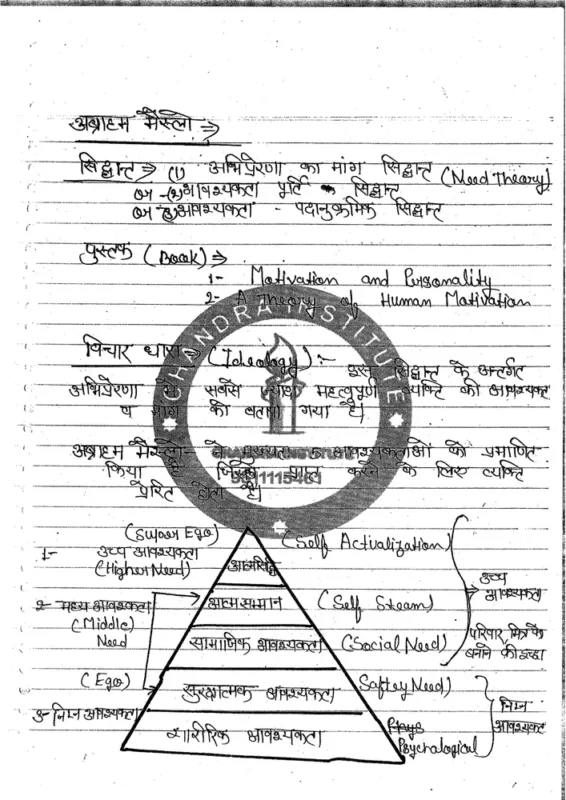 अब्राहम मैस्लो ⇒
सिद्धान्त ⇒ (1) अभिप्रेरणा का मांग सिद्धान्त (Need Theory)
(2) आवश्यकता पूर्ति सिद्धान्त
(3) आवश्यकता - पदानुक्रमिक सिद्धान्त
पुस्तक (Book) ⇒
1- Motivation and Personality
2- A Theory of Human Motivation
विचार धारा ⇒ (Ideology) :-
इस सिद्धान्त के अन्तर्गत
अभिप्रेरणा में सबसे ज्यादा महत्वपूर्ण व्यक्ति की आवश्यकता
व मांग को बताया गया है।
अब्राहम मैस्लो ने आवश्यकताओं को प्रमाणित
किया प्राप्त करने के लिए व्यक्ति
प्रेरित होता है।
CHANDRA INSTITUTE
(Super Ego)
1- उच्च आवश्यकता
(Higher Need)
आत्मसिद्धि
(Self Actualization)
उच्च
आवश्यकता
2- मध्य आवश्यकता
(Middle)
Need
आत्म सम्मान
(Self Steam)
सामाजिक आवश्यकता
(Social Need)
परिवार मित्र के
बनाने की इच्छा
(Ego)
सुरक्षात्मक आवश्यकता
Saftey Need)
3- निम्न आवश्यकता
शारीरिक आवश्यकता
Psychalogical
निम्न
आवश्यकता